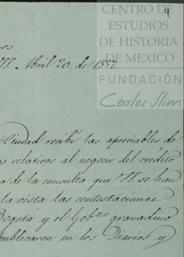 4
CENTRO DE
ESTUDIOS
DE HISTORIA
DE MEXICO
FUNDACIÓN
Carlos Slim
Abril 20 de 1854.
Ciudad recibí las apreciables de
relativos al negocio del credito
a de la consulta que se han
la vista las contestaciones
Bogotá y el Gobno granadino
publicaron en los Diarios y